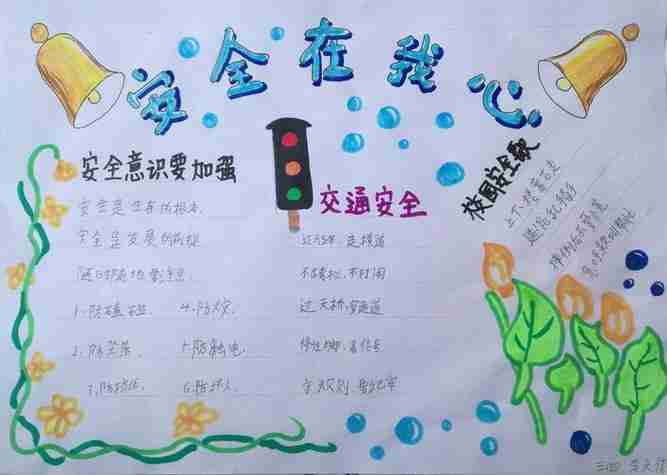 安全在我心
安全意识要加强
安全是生存的根本
安全是发展的前提
随时随地要注意
1.防磕碰 4.防火灾
2.防 5.防触电
3.防 6.防坏人
交通安全
过马路,走横道
不 ,不打闹
过天桥,穿通道
停住脚,看信号
守规则,要记牢
校园安全歌
上下楼靠右走